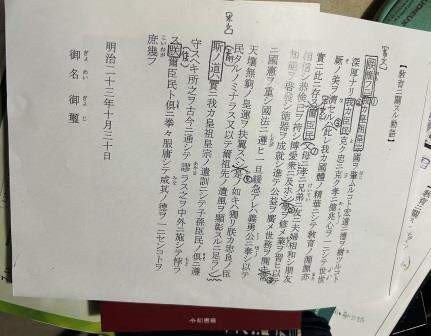 【教育ニ關スル勅語】
朕惟フニ我カ皇祖皇宗國ヲ肇ムルコト宏遠ニ德ヲ樹ツルコト
深厚ナリ我カ臣民克ク忠ニ克ク孝ニ億兆心ヲ一ニシテ世世
厥ノ美ヲ濟セルハ此レ我カ國體ノ精華ニシテ教育ノ淵源亦
實ニ此ニ存ス爾臣民父母ニ孝ニ兄弟ニ友ニ夫婦相和シ朋友
相信シ恭儉己ヲ持シ博愛衆ニ及ホシ學ヲ修メ業ヲ習ヒ以テ
知能ヲ啓發シ德器ヲ成就シ進テ公益ヲ廣メ世務ヲ開キ常
ニ國憲ヲ重シ國法ニ遵ヒ一旦緩急アレハ義勇公ニ奉シ以テ
天壤無窮ノ皇運ヲ扶翼スヘシ是ノ如キハ獨リ朕カ忠良ノ臣
民タルノミナラス又以テ爾祖先ノ遺風ヲ顯彰スルニ足ラン
斯ノ道ハ實ニ我カ皇祖皇宗ノ遺訓ニシテ子孫臣民ノ俱ニ遵
守スヘキ所之ヲ古今ニ通シテ謬ラス之ヲ中外ニ施シテ悖ラ
ス朕爾臣民ト俱ニ拳々服膺シテ咸其德ヲ一ニセンコトヲ
庶幾フ
明治二十三年十月三十日
御名 御璽
令和書籍